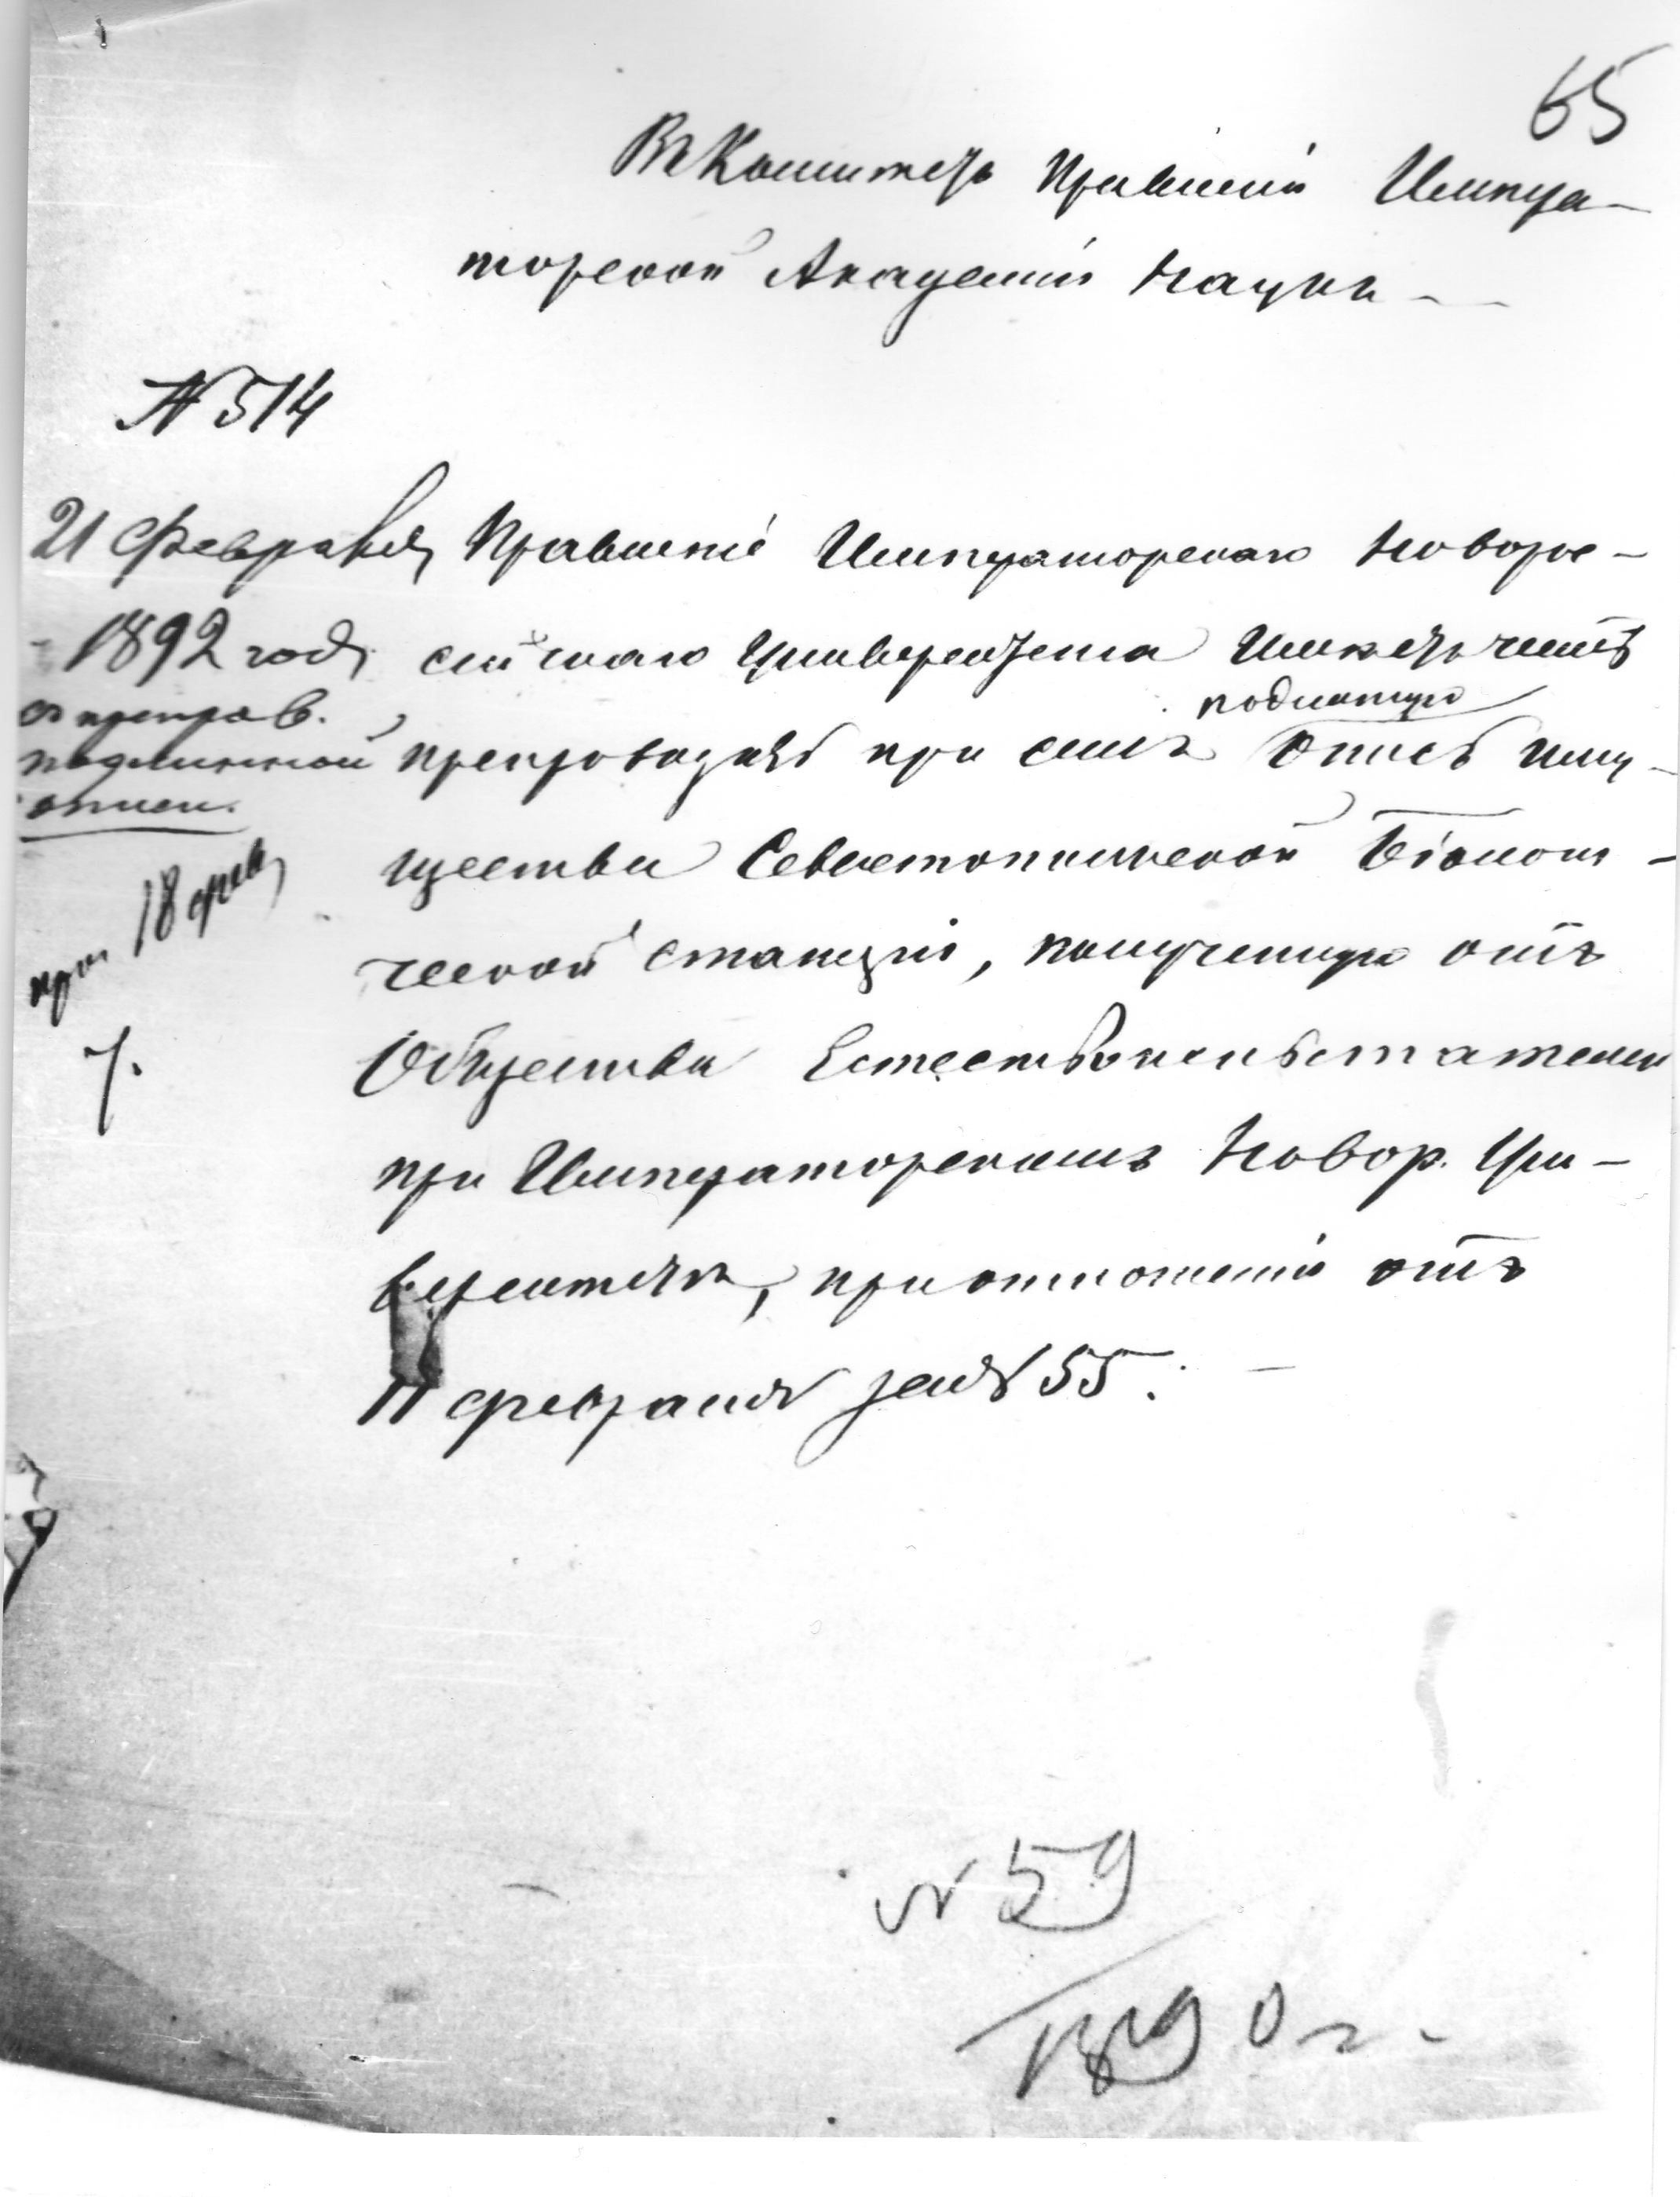 65
Въ Комитетъ Правленія Импера-
торской Академіи Наукъ
№ 514
21 Февраля
1892 года
съ препров.
подлинной
описи.
18 фев
Правленіе Императорскаго Новорос-
сійскаго Университета имѣетъ честь
подлинную
препроводить при семъ опись иму-
щества Севастопольской Біологи-
ческой станціи, полученную отъ
Общества Естествоиспытателей
при Императорскомъ Новор. Уни-
верситетѣ, при отношеніи отъ
11 февраля за № 55.
№ 59
1890 г.